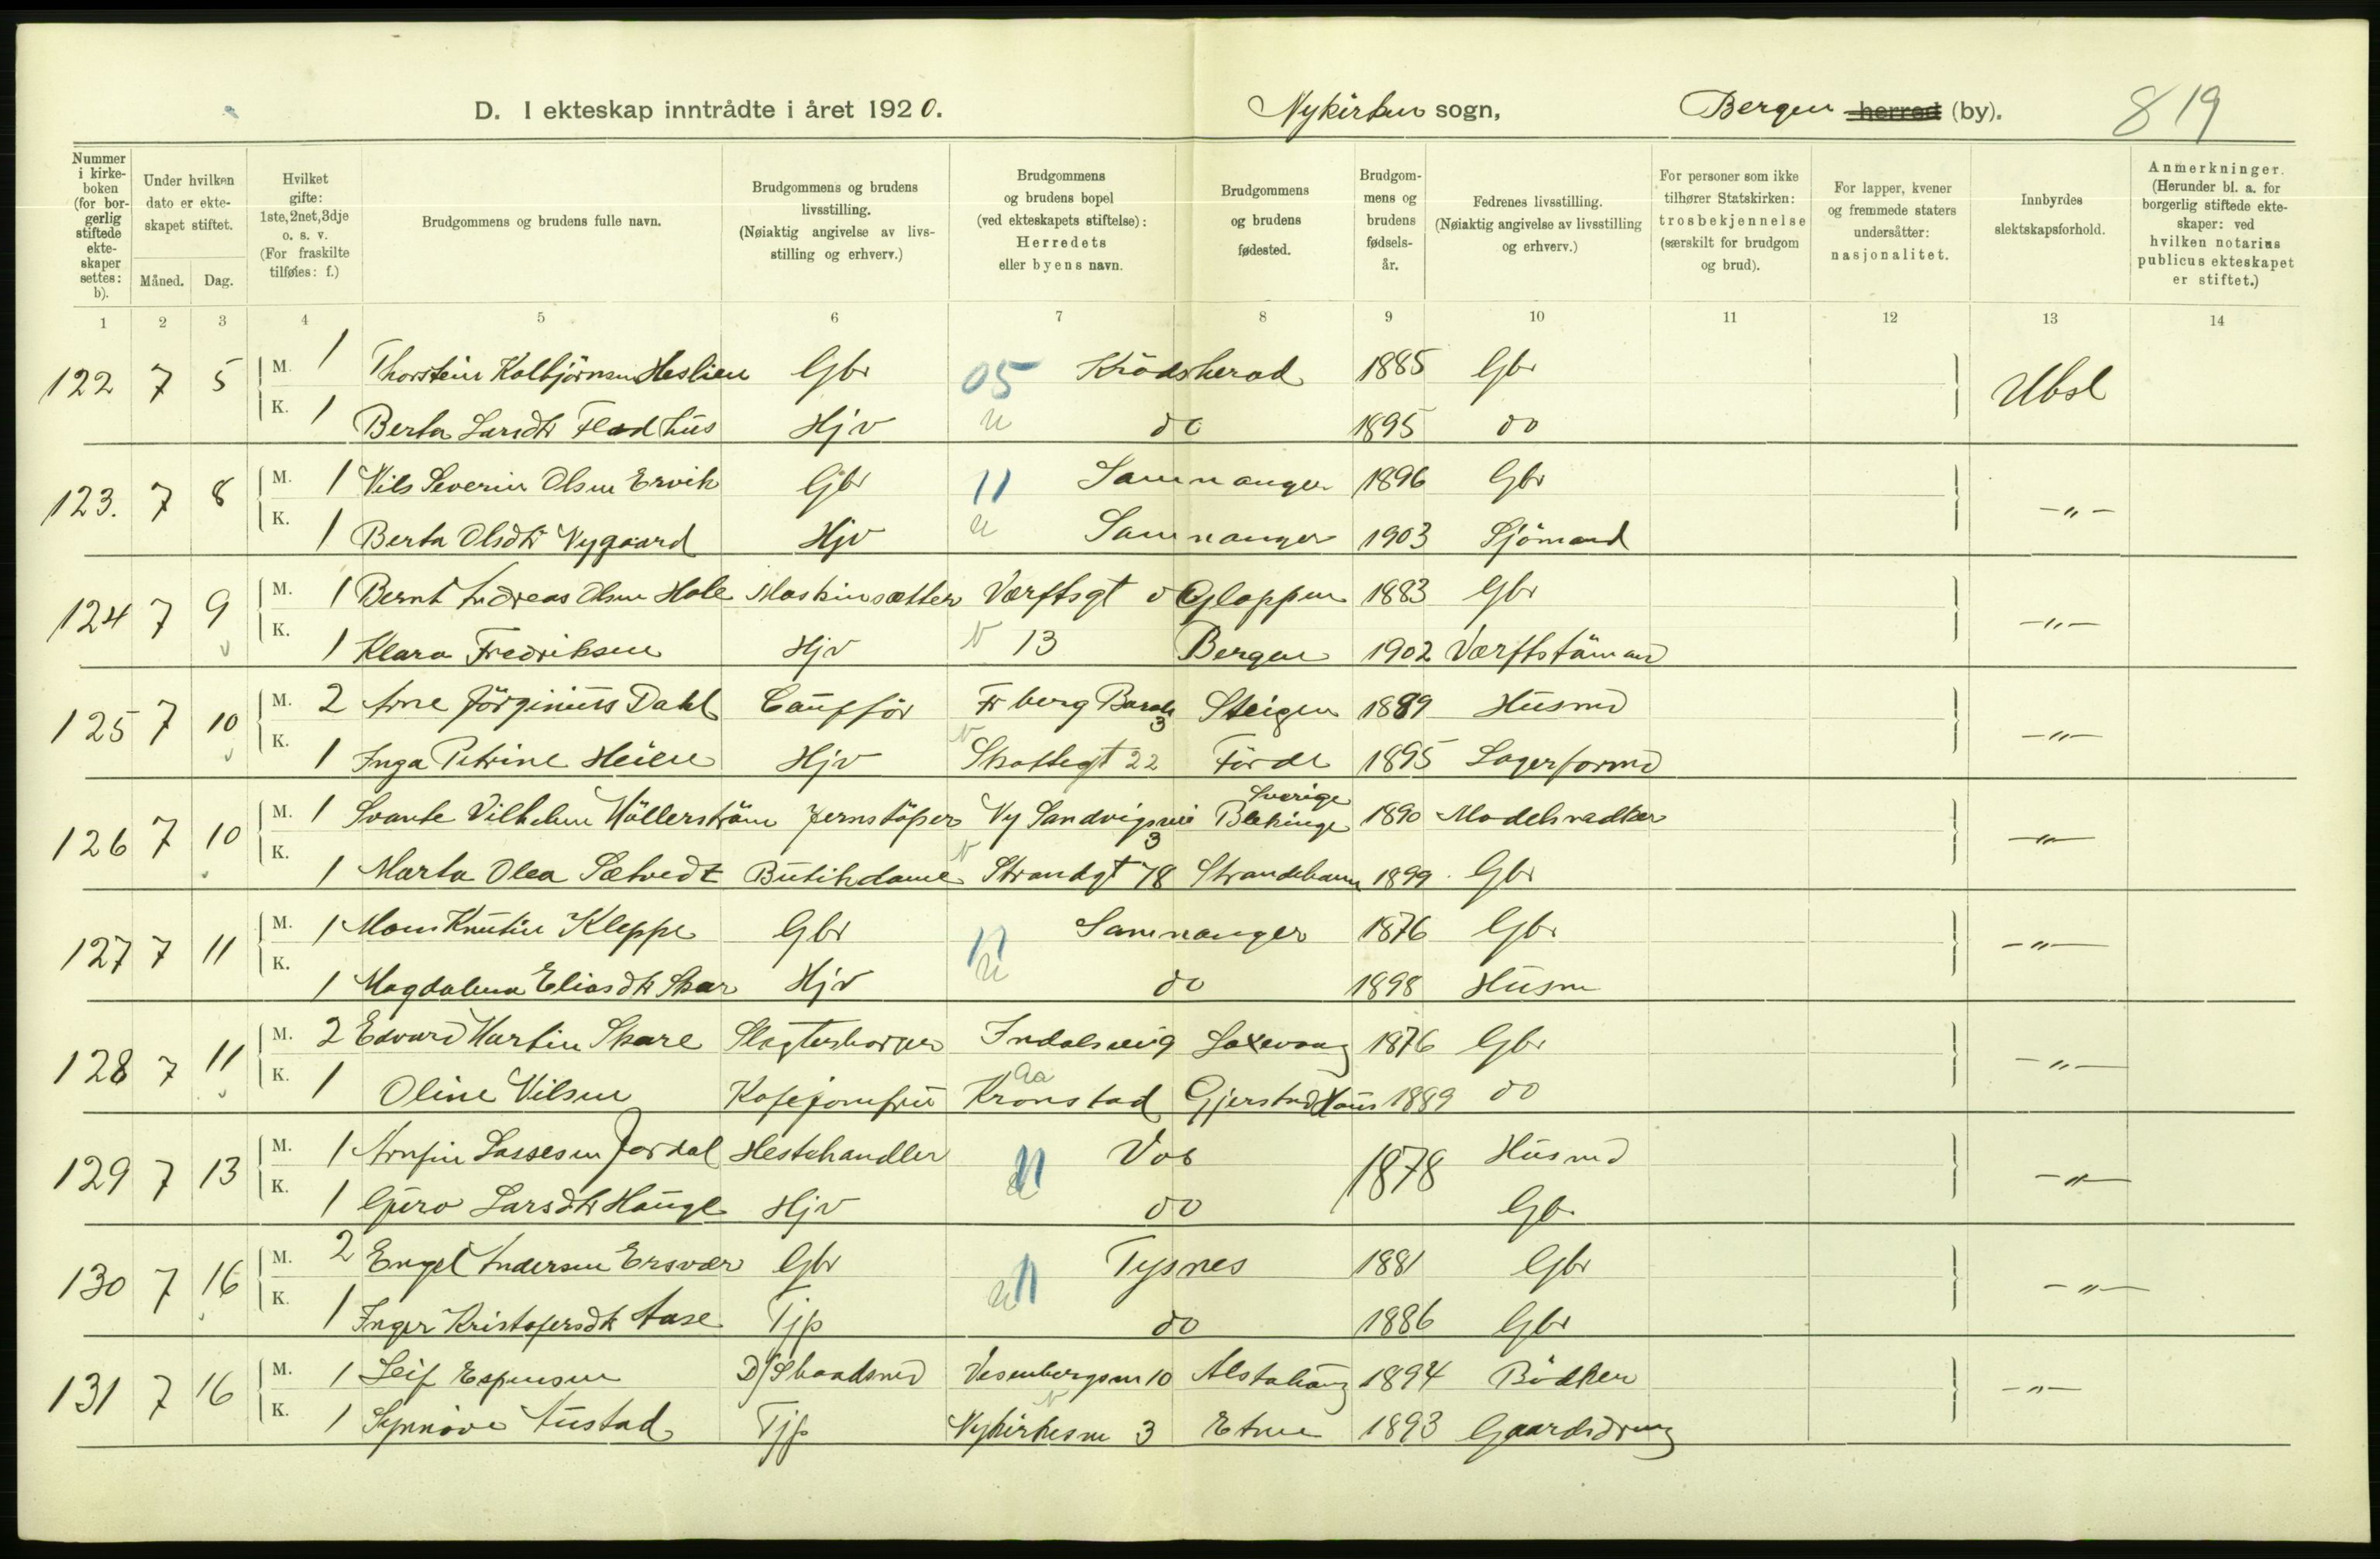 D. I ekteskap inntrådte i året 1920. Nykirken sogn, Bergen herred (by). 819
Nummer i kirkeboken (for borgerlig stiftede ekteskaper settes: b).
Under hvilken dato er ekteskapet stiftet.
Måned. Dag.
Hvilket gifte: 1ste, 2net, 3dje o. s. v. (For fraskilte tilføies: f.)
Brudgommens og brudens fulle navn.
Brudgommens og brudens livsstilling. (Nøiaktig angivelse av livsstilling og erhverv.)
Brudgommens og brudens bopel (ved ekteskapets stiftelse): Herredets eller byens navn.
Brudgommens og brudens fødested.
Brudgommens og brudens fødselsår.
Fedrenes livsstilling. (Nøiaktig angivelse av livsstilling og erhverv.)
For personer som ikke tilhører Statskirken: trosbekjennelse (særskilt for brudgom og brud).
For lapper, kvener og fremmede staters undersåtter: nasjonalitet.
Innbyrdes slektskapsforhold.
Anmerkninger. (Herunder bl. a. for borgerlig stiftede ekteskaper: ved hvilken notarius publicus ekteskapet er stiftet.)
1 2 3 4 5 6 7 8 9 10 11 12 13 14
122 7 5 M. 1 Thorstein Kolbjörnsen Heslien Gbr 05 Krödsherad 1885 Gbr Ubsl
K. 1 Berta Larsdtr Fladhus Hjv do 1895 do
123. 7 8 M. 1 Nils Severin Olsen Ervik Gbr 11 Samnanger 1896 Gbr -"-
K. 1 Berta Olsdtr Nygaard Hjv Samnanger 1903 Sjömand
124 7 9 M. 1 Bernt Andreas Olsen Hole Maskinsætter Værftsgt Gloppen 1883 Gbr -"-
K. 1 Klara Fredriksen Hjv 13 Bergen 1902 Værftstömand
125 7 10 M. 2 Arne Jörginius Dahl Caufför berg Barak 3 Steigen 1889 Husmd -"-
K. 1 Inga Petrine Heien Hjv Skottegt 22 Förde 1895 Lagerformd
126 7 10 M. 1 Svante Vilhelm Möllerström Jernstöper Ny Sandvigsvei 3 Sverige Blekinge 1890 Modelsnedker -"-
K. 1 Marta Olea Sætvedt Butikdame Strandgt 78 Strandebarm 1899 Gbr
127 7 11 M. 1 Mons Knutsen Kleppe Gbr 11 Samnanger 1876 Gbr -"-
K. 1 Magdalena Eliasdtr Skar Hjv do 1898 Husm
128 7 11 M. 2 Edvard Martin Skare Slagterborger Indalsvei 9 Laxevaag 1876 Gbr -"-
K. 1 Oline Nilsen Kafejomfru Kronstad Gjerstad Haus 1889 do
129 7 13 M. 1 Arnfin Lassesen Jordal Hestehandler 11 Vos 1878 Husmd -"-
K. 1 Guro Larsdtr Hauge Hjv do Gbr
130 7 16 M. 2 Engel Andersen Ersvær Gbr 11 Tysnes 1881 Gbr -"-
K. 1 Inger Kristofersdtr Aase Tjp do 1886 Gbr
131 7 16 M. 1 Leif Espensen D/Skaadsmd Vesenbergsm 10 Alstahaug 1894 Bödker -"-
K. 1 Synnöve Austad Tjp Nykirkesm 3 Etne 1893 Gaardsdreng